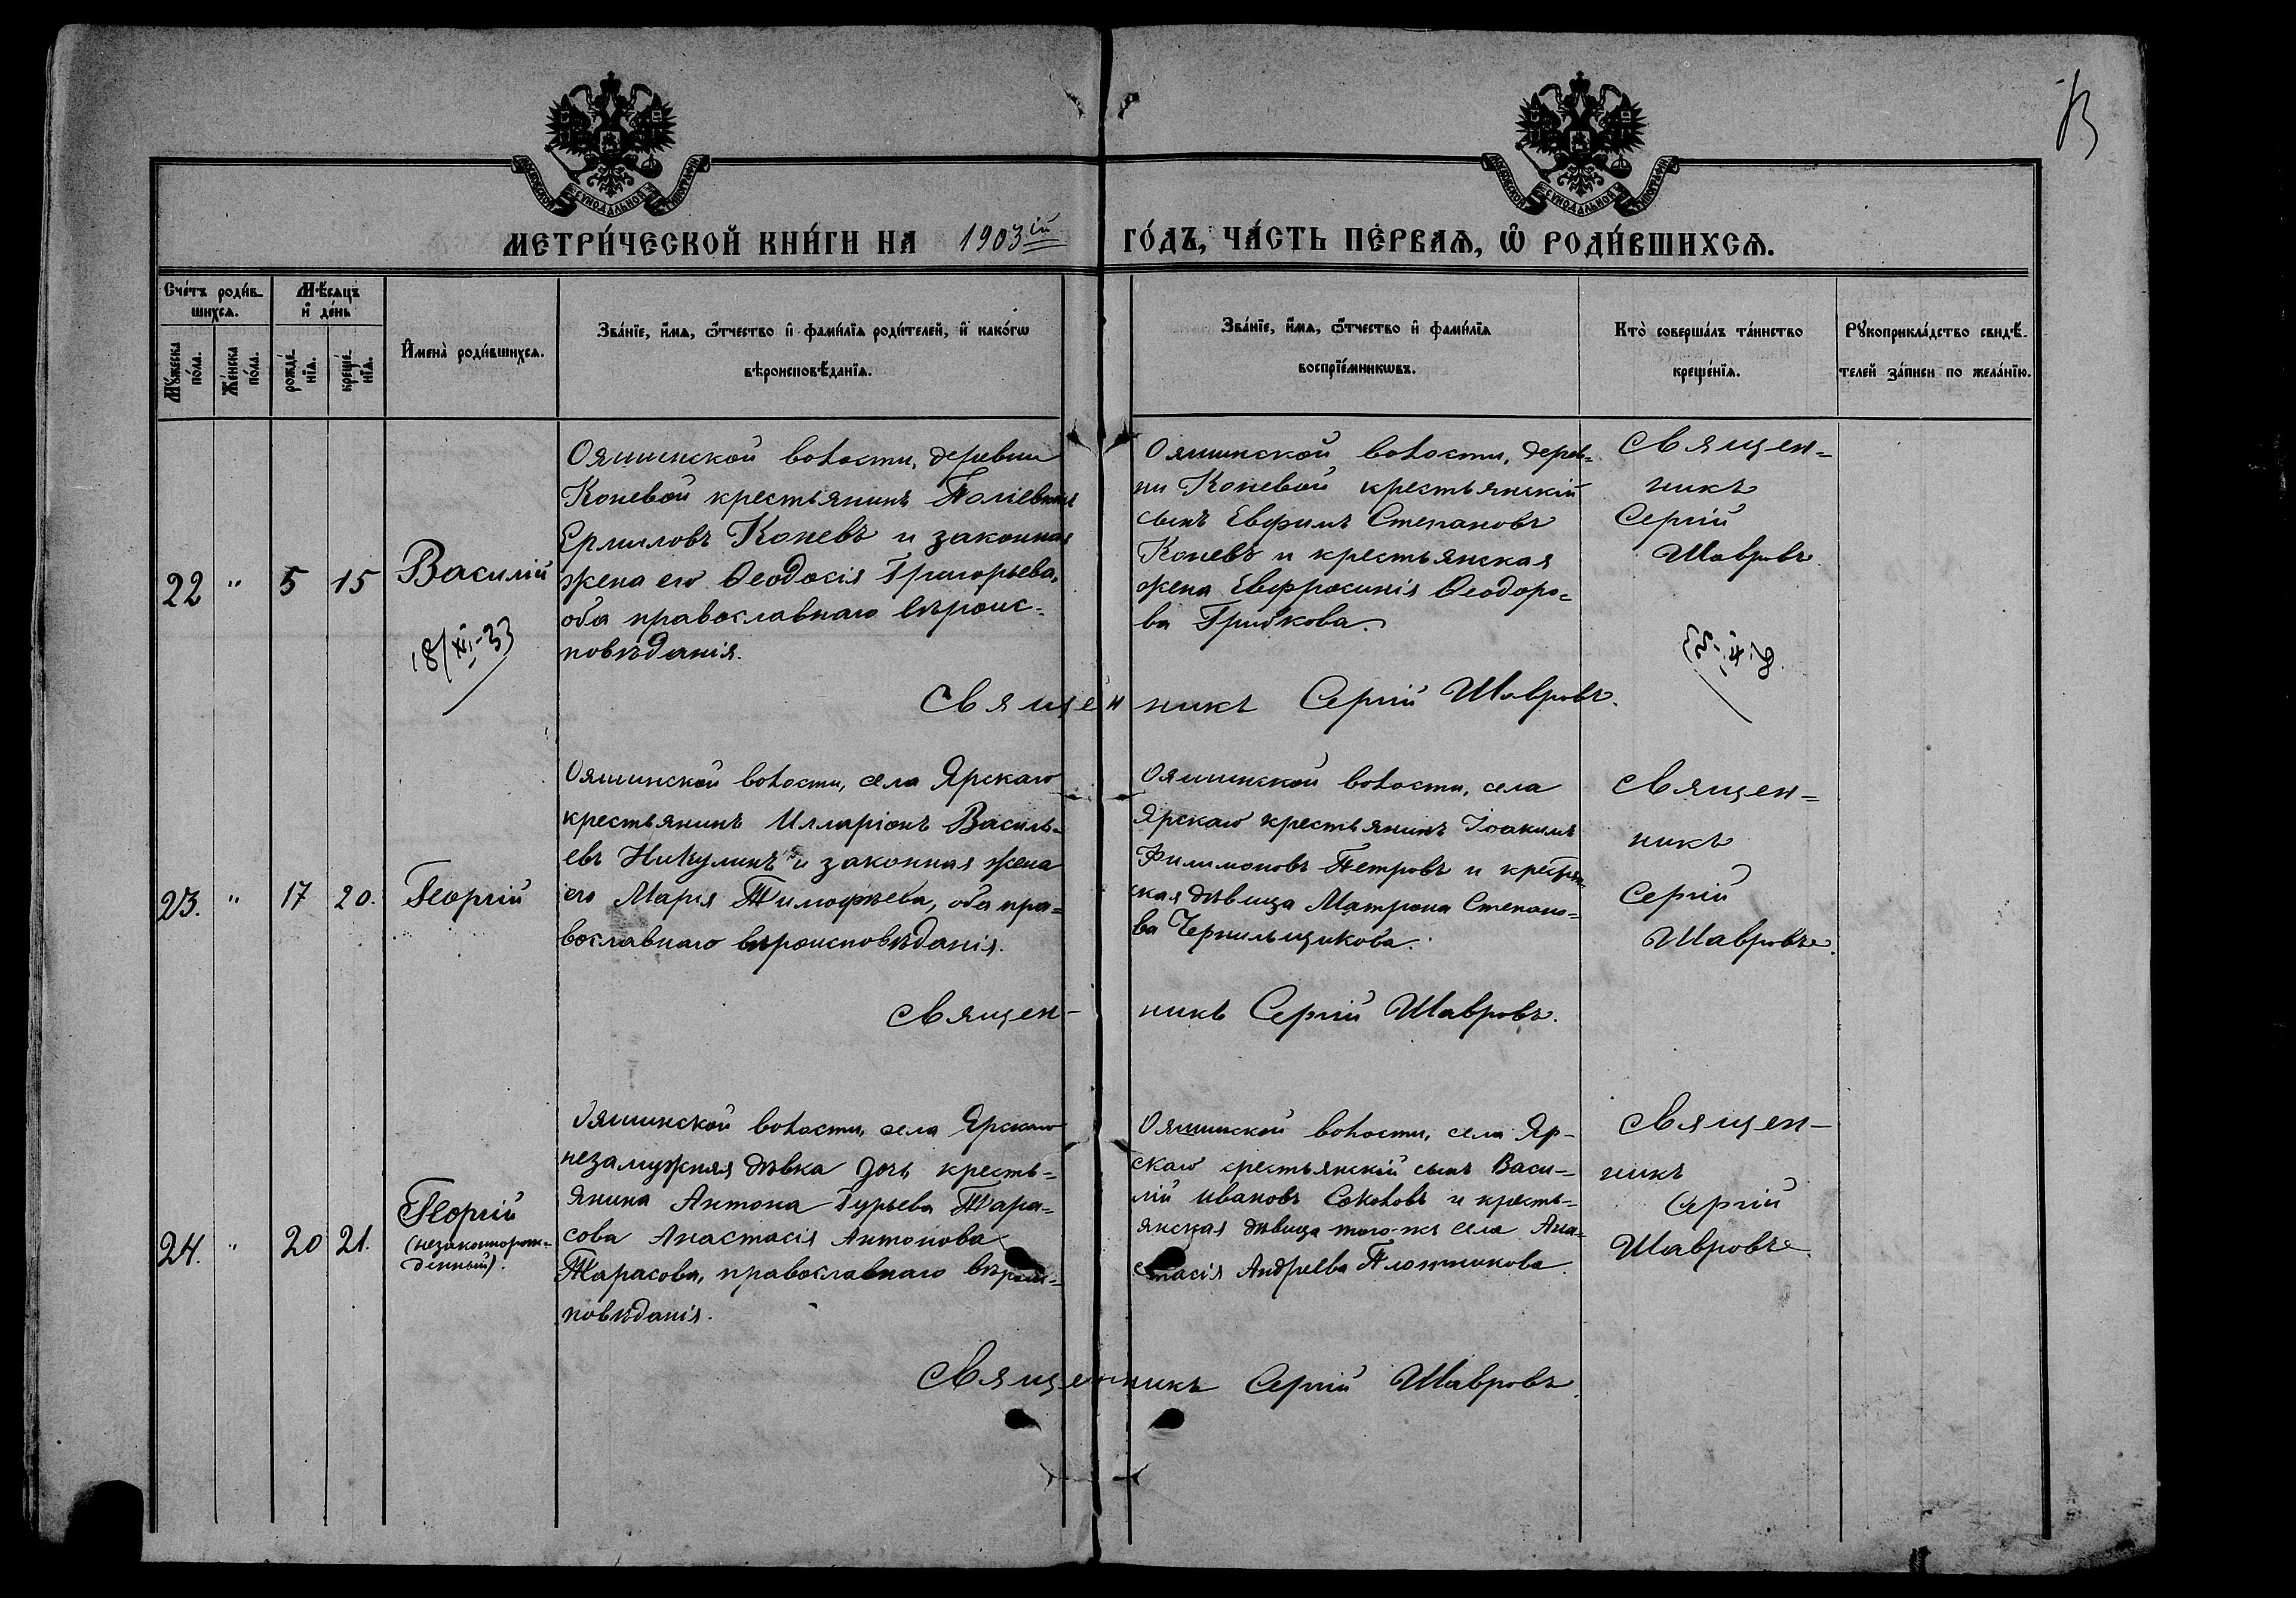 МОСКОВСКОЙ СѴНОДАЛЬНОЙ ТИПОГРАФІИ
МОСКОВСКОЙ СѴНОДАЛЬНОЙ ТИПОГРАФІИ
МЕТРИ́ЧЕСКОЙ КНИ́ГИ НА 1903ій ГО́ДЪ, ЧА́СТЬ ПЕ́РВАѦ, Ѡ҆ РОДИ́ВШИХСѦ.
Сче́тъ роди́в-
шихсѧ.
Мѣ́сѧцъ
и҆ де́нь
Мꙋ́жеска
по́ла.
Же́нска
по́ла.
рожде́-
нїѧ.
креще́-
нїѧ.
И҆мена̀ роди́вшихсѧ.
Зва́нїе, и҆́мѧ, ѻ҆́тчество и҆ фами́лїѧ роди́телей, и҆ како́гѡ
вѣроисповѣ́данїѧ.
Зва́нїе, и҆́мѧ, ѻ҆́тчество и҆ фами́лїѧ
воспрїе́мникѡвъ.
Кто̀ соверша́лъ та́инство
креще́нїѧ.
Рꙋкоприкла́дство свидѣ́-
телей за́писи по жела́нїю.
22 " 5 15 Василій
18/XII-33
Ояшинской волости, деревни
Коневой крестьянинъ
Ермиловъ Коневъ и законная
жена его Ѳеодосія Григорьева,
оба православнаго вѣроис-
повѣданія.
Ояшинской волости, дерев-
ни Коневой крестьянскій
сынъ Евфимъ Степановъ
Коневъ и крестьянская
жена Евфросинія Ѳеодоро-
ва Грибкова.
Священ-
никъ
Сергій
Шавровъ
Священникъ Сергій Шавровъ.
23. " 17 20. Георгій
Ояшинской волости, села Ярскаго
крестьянинъ Илларіонъ Василь-
евъ Никулинъ и законная жена
его Марія Тимофѣева, оба пра-
вославнаго вѣроисповѣданія.
Ояшинской волости, села
Ярскаго крестьянинъ Іоакимъ
Филимоновъ Петровъ и крестьян-
ская дѣвица Матрона Степано-
ва Чернильщикова.
Священ-
никъ
Сергій
Шавровъ.
Священ-никъ Сергій Шавровъ.
24. " 20 21. Георгій
(незаконорож-
денный).
Ояшинской волости, села Ярскаго
незамужняя дѣвка дочь кресть-
янина Антона Гурьева Тара-
сова Анастасія Антонова
Тарасова, православнаго вѣроис-
повѣданія.
Ояшинской волости, села Яр-
скаго крестьянскій сынъ Васи-
лій Ивановъ Соколовъ и кресть-
янская дѣвица того-же села Ана-
стасія Андреева Плотникова.
Священ-
никъ
Сергій
Шавровъ.
Священникъ Сергій Шавровъ.